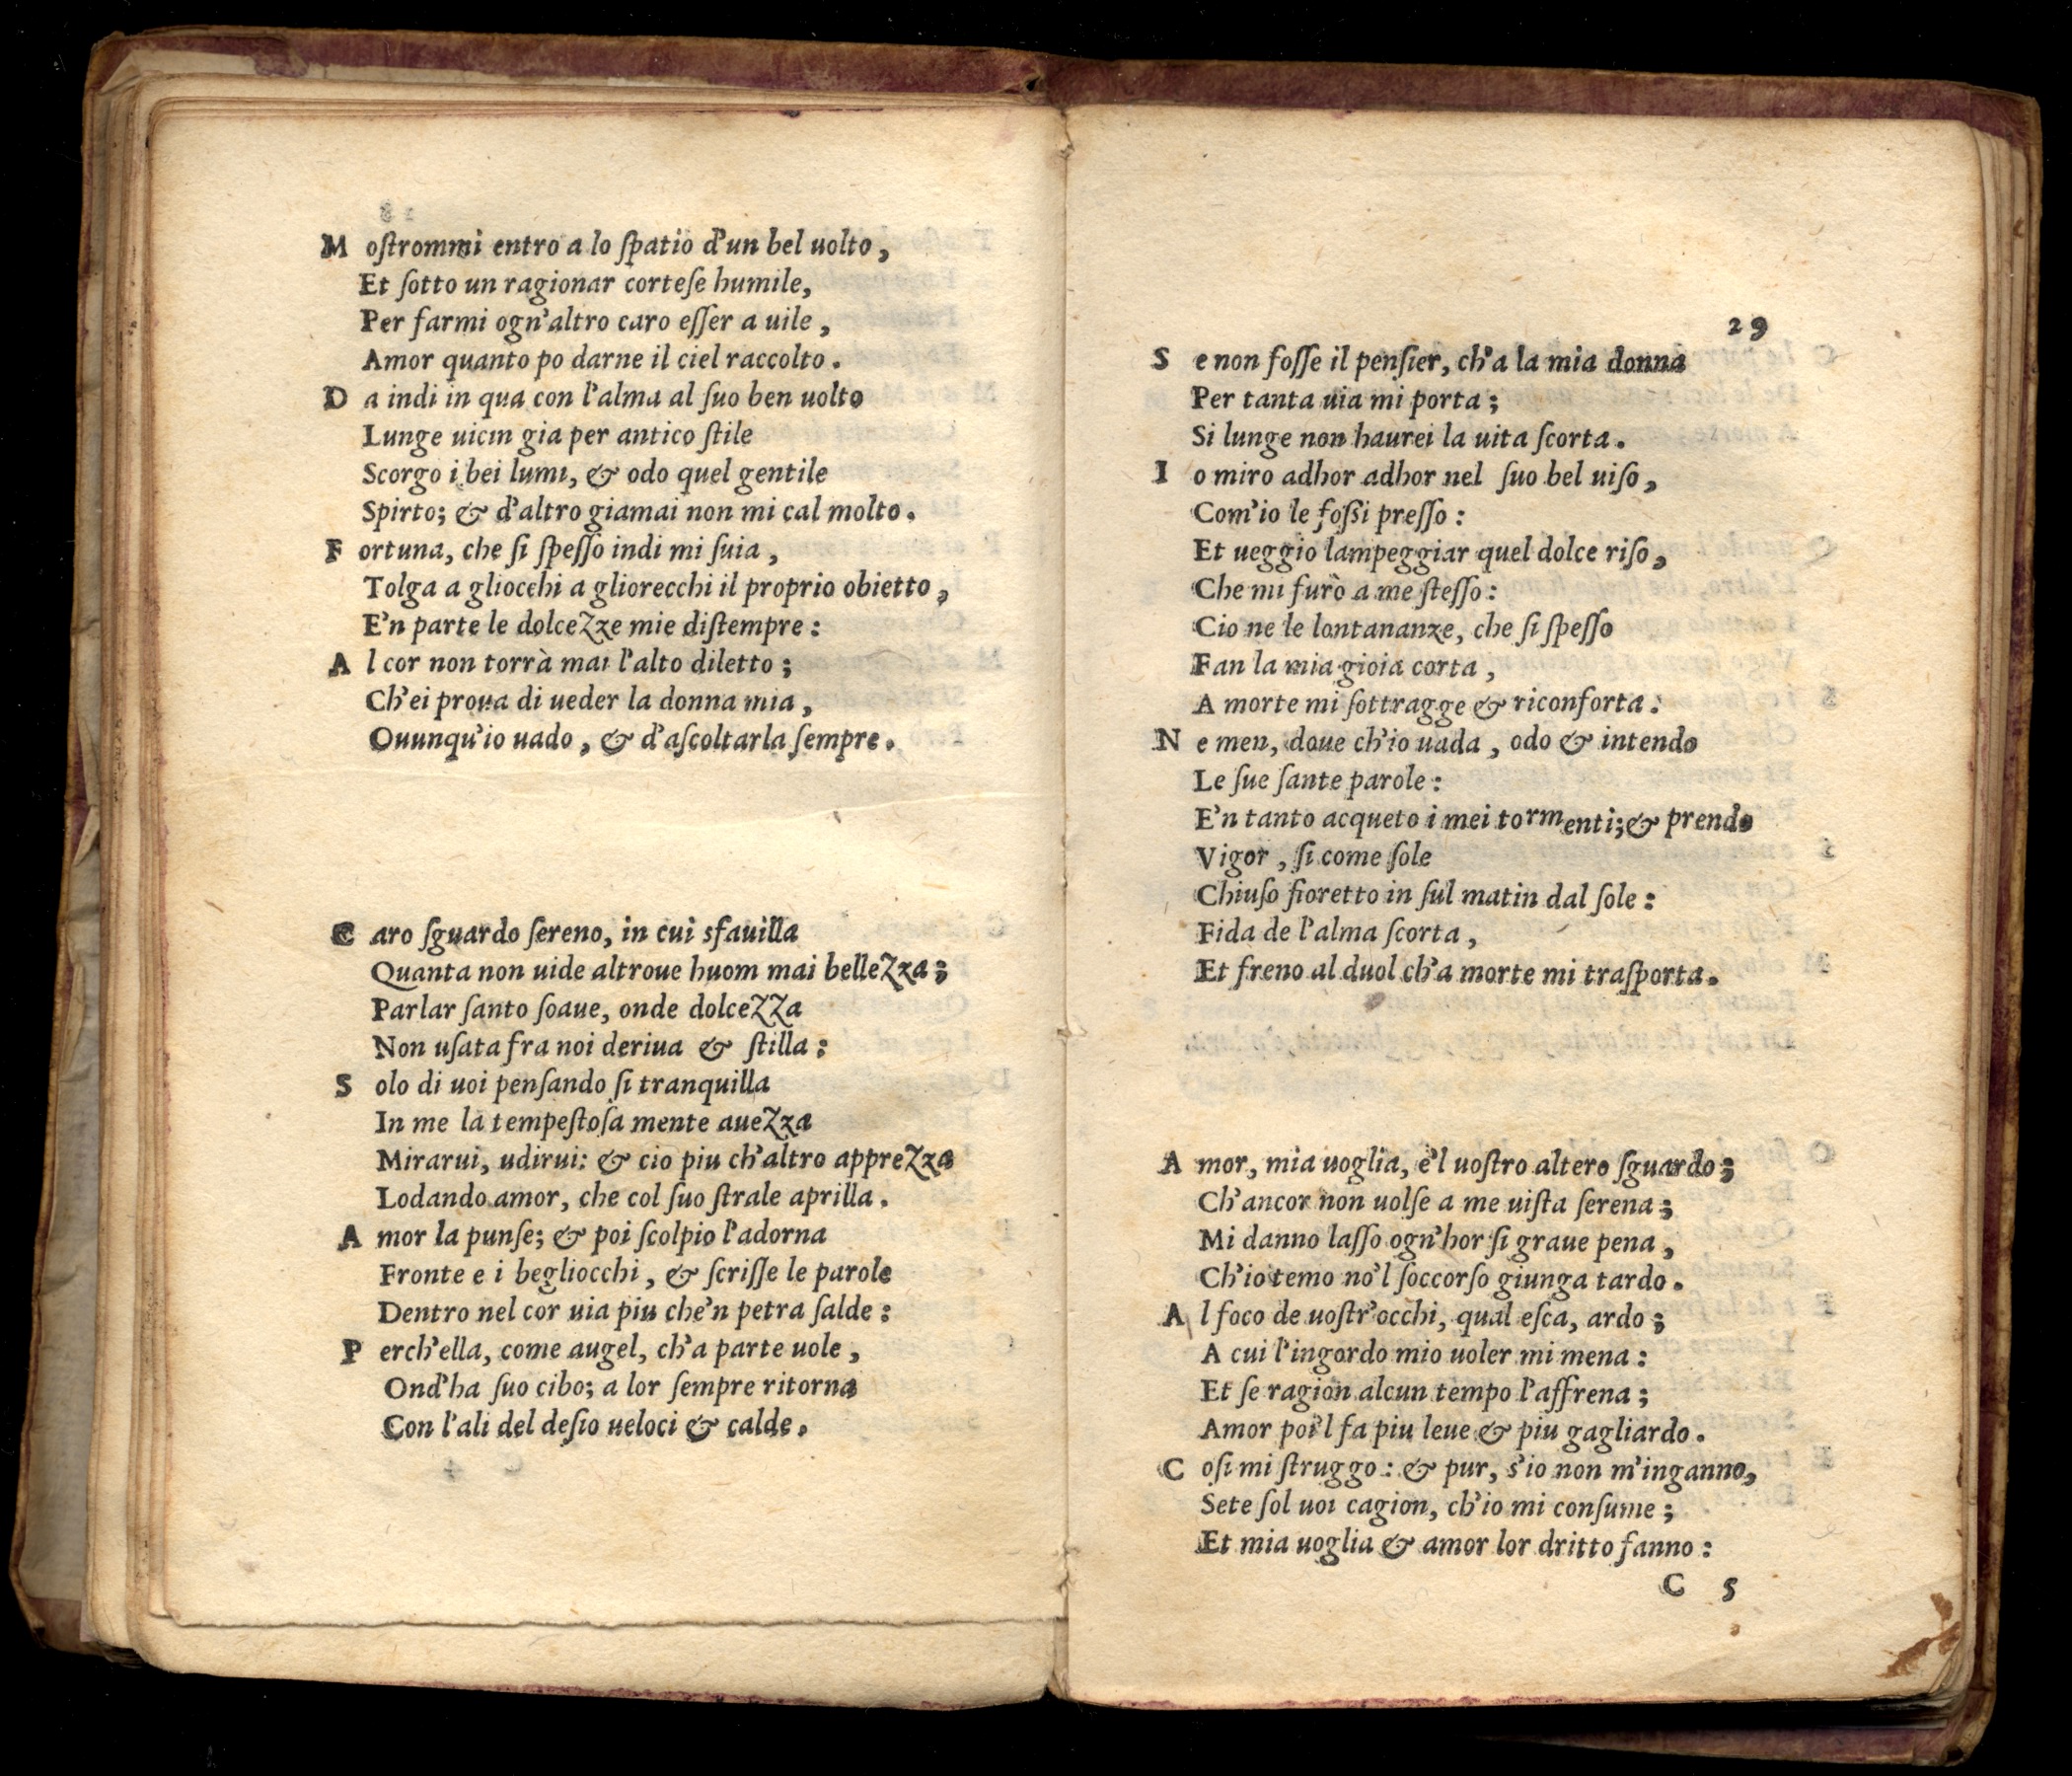 M oſtrommi entro a lo ſpatio d'un bel uolto,
Et ſotto un ragionar corteſe humile,
Per farmi ogn'altro caro eſſer a uile,
Amor quanto po darne il ciel raccolto.
D a indi in qua con l'alma al ſuo ben uolto
Lunge uicin gia per antico ſtile
Scorgo i bei lumi, & odo quel gentile
Spirto; & d'altro giamai non mi cal molto.
F ortuna, che ſi ſpeſſo indi mi ſuia,
Tolga a gliocchi a gliorecchi il proprio obietto,
E'n parte le dolcezze mie diſtempre:
A l cor non torrà mai l'alto diletto;
Ch'ei proua di ueder la donna mia,
Ouunqu'io uado, & d'aſcoltarla ſempre.
C aro ſguardo ſereno, in cui sfauilla
Quanta non uide altroue huom mai bellezza;
Parlar ſanto ſoaue, onde dolcezza
Non uſata fra noi deriua & ſtilla:
S olo di uoi penſando ſi tranquilla
In me la tempeſtoſa mente auezza
Mirarui, udirui: & cio piu ch'altro apprezza
Lodando amor, che col ſuo ſtrale aprilla.
A mor la punſe; & poi ſcolpio l'adorna
Fronte e i begliocchi, & ſcriſſe le parole
Dentro nel cor uia piu che'n petra ſalde:
P erch'ella, come augel, ch'a parte uole,
Ond'ha ſuo cibo; a lor ſempre ritorna
Con l'ali del deſio ueloci & calde.
29
S e non foſſe il penſier, ch'a la mia donna
Per tanta uia mi porta;
Si lunge non haurei la uita ſcorta.
I o miro adhor adhor nel ſuo bel uiſo,
Com'io le foſſi preſſo:
Et ueggio lampeggiar quel dolce riſo,
Che mi furò a me ſteſſo:
Cio ne le lontananze, che ſi ſpeſſo
Fan la mia gioia corta,
A morte mi ſottragge & riconforta:
N e men, doue ch'io uada, odo & intendo
Le ſue ſante parole:
E'n tanto acqueto i mei tormenti;& prendo
Vigor, ſi come ſole
Chiuſo fioretto in ſul matin dal ſole:
Fida de l'alma ſcorta,
Et freno al duol ch'a morte mi traſporta.
A mor, mia uoglia, e'l uoſtro altero ſguardo;
Ch'ancor non uolſe a me uiſta ſerena;
Mi danno laſſo ogn'hor ſi graue pena,
Ch'io temo no'l ſoccorſo giunga tardo.
A l foco de uoſtr'occhi, qual eſca, ardo;
A cui l'ingordo mio uoler mi mena:
Et ſe ragion alcun tempo l'affrena;
Amor poi'l fa piu leue & piu gagliardo.
C oſi mi ſtruggo: & pur, s'io non m'inganno,
Sete ſol uoi cagion, ch'io mi conſume;
Et mia uoglia & amor lor dritto fanno:
C 5